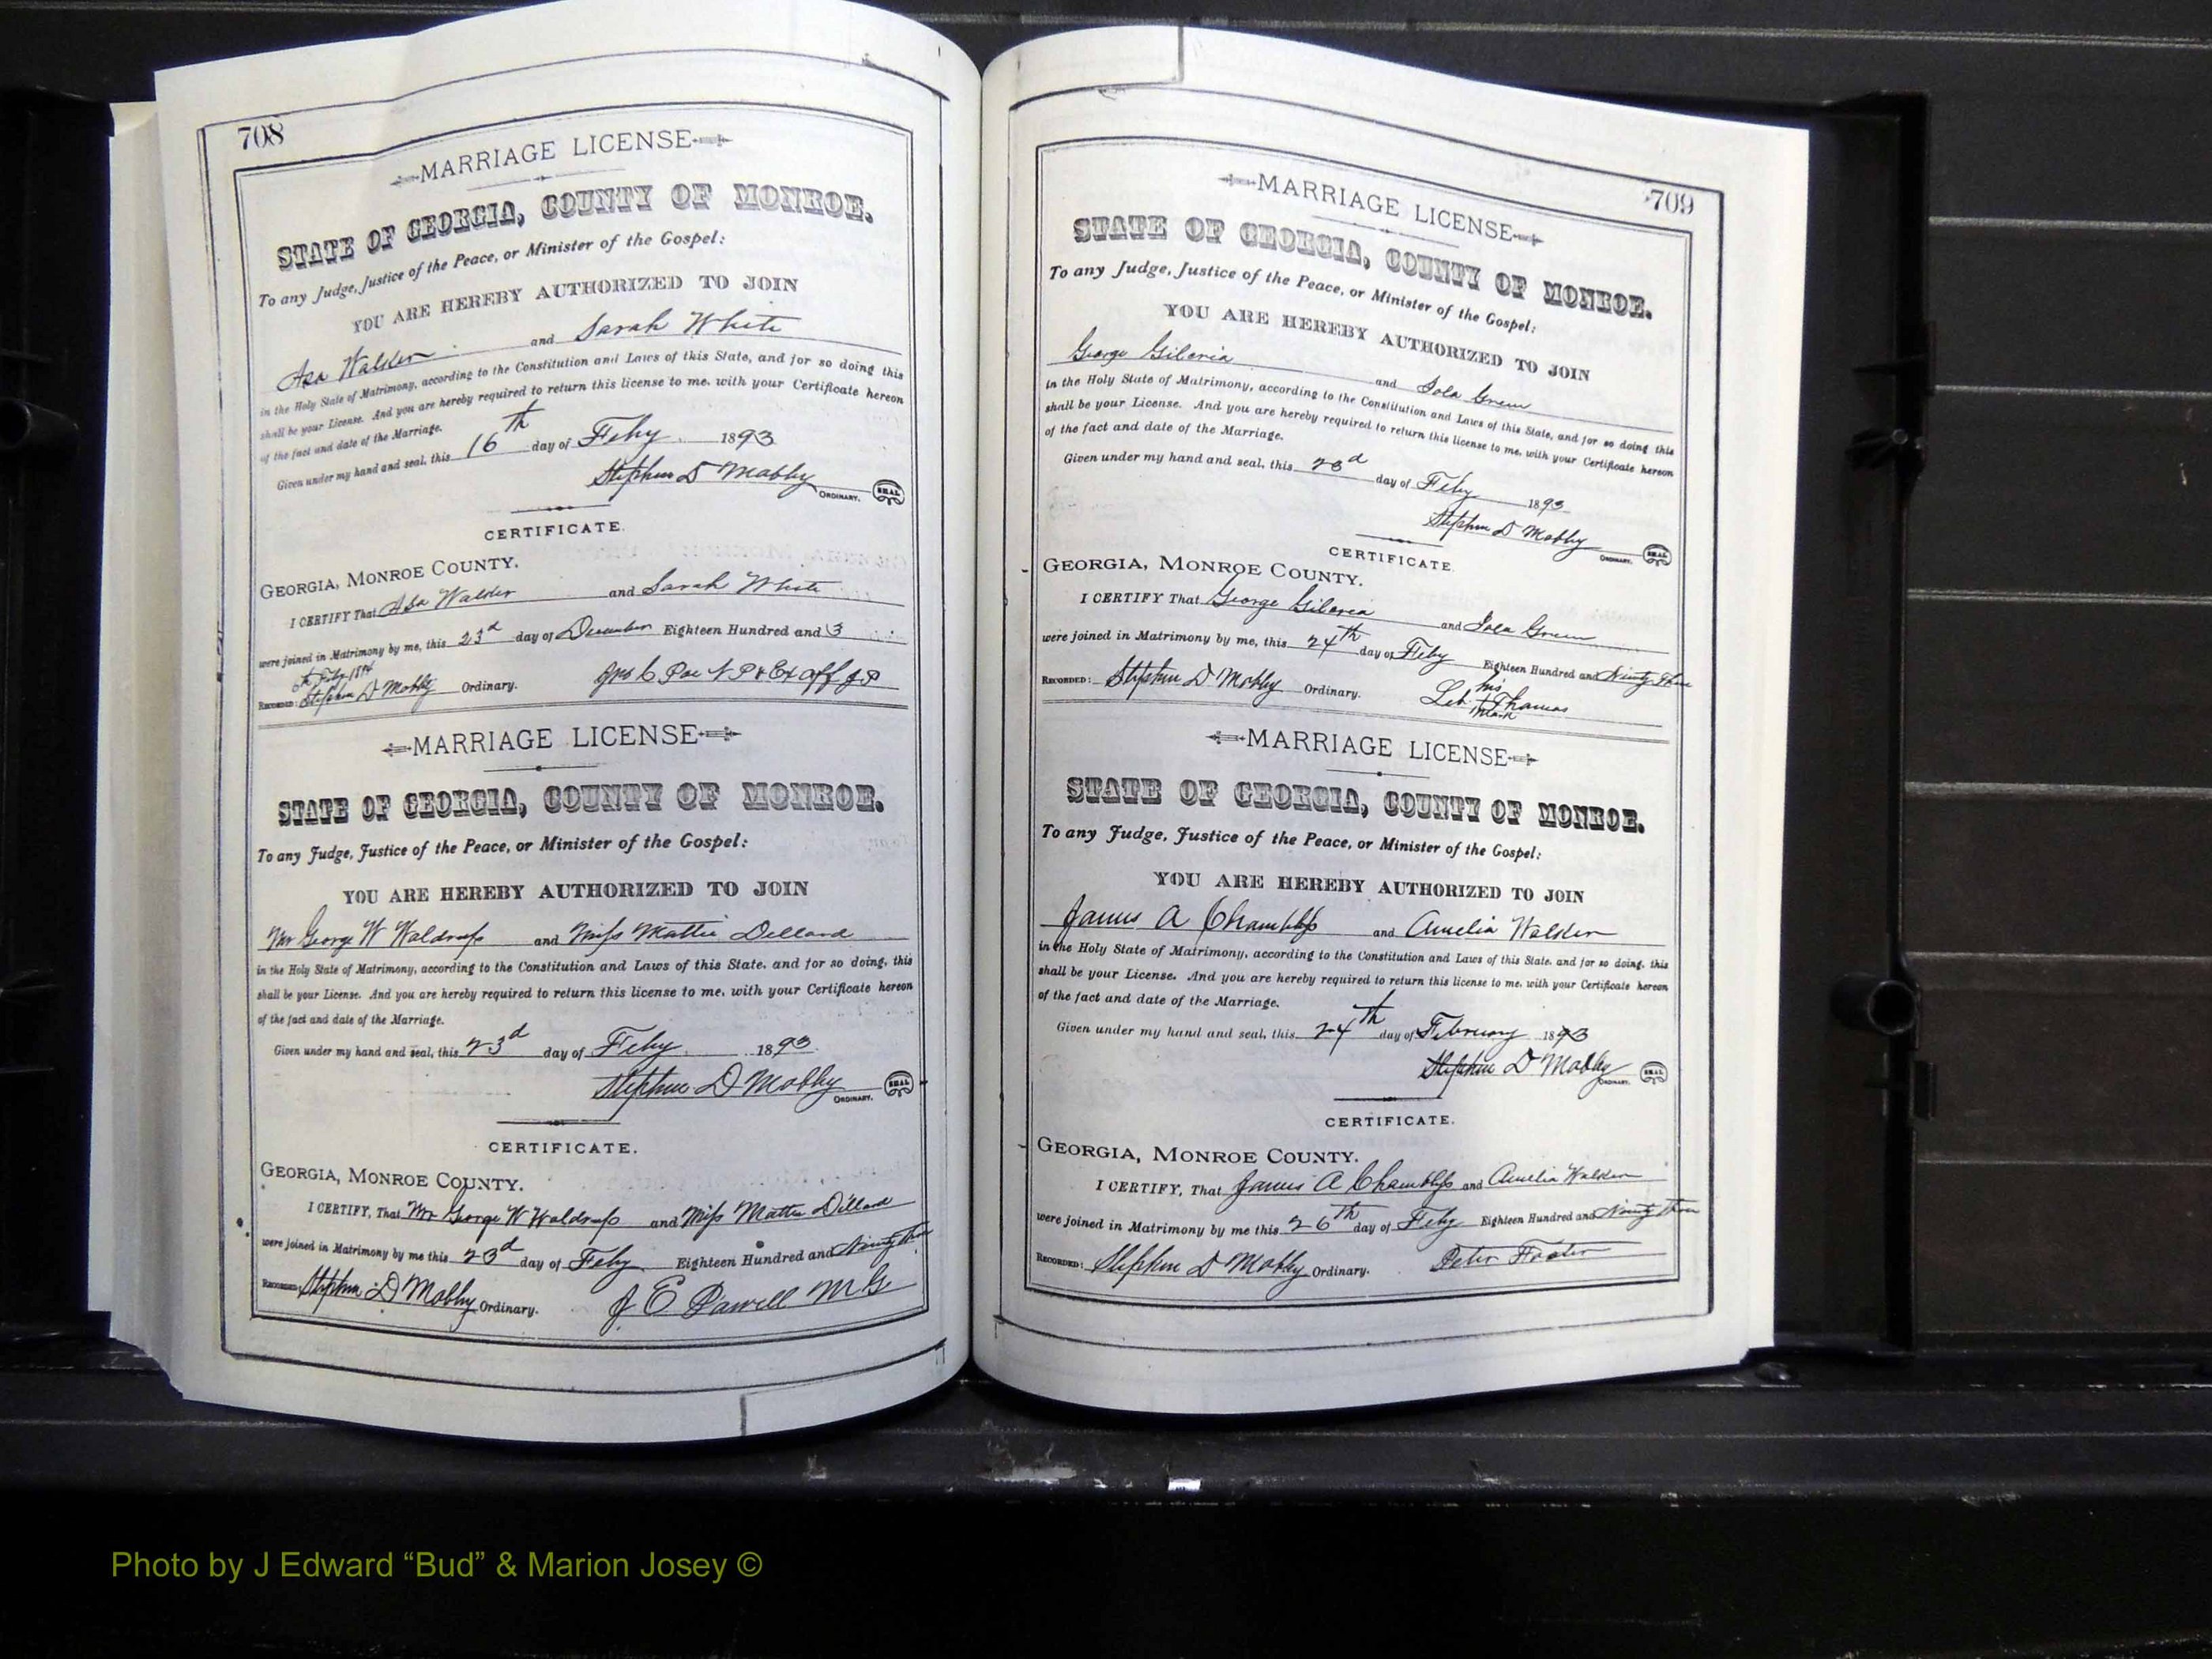 708
MARRIAGE LICENSE
STATE OF GEORGIA, COUNTY OF MONROE.
To any Judge, Justice of the Peace, or Minister of the Gospel:
YOU ARE HEREBY AUTHORIZED TO JOIN
Asa Walder and Sarah White
in the Holy State of Matrimony, according to the Constitution and Laws of this State, and for so doing this
shall be your License. And you are hereby required to return this license to me, with your Certificate hereon
of the fact and date of the Marriage.
Given under my hand and seal, this 16th day of Feby 1893
Stephen D Mobley ORDINARY. SEAL
CERTIFICATE.
GEORGIA, MONROE COUNTY.
I CERTIFY That Asa Walder and Sarah White
were joined in Matrimony by me, this 23d day of December Eighteen Hundred and 3
6th Feby 1894
RECORDED: Stephen D Mobley Ordinary. Jno C Poe N P & Ex off J P
MARRIAGE LICENSE
STATE OF GEORGIA, COUNTY OF MONROE.
To any Judge, Justice of the Peace, or Minister of the Gospel:
YOU ARE HEREBY AUTHORIZED TO JOIN
Mr George W Waldrup and Miss Mattie Dillard
in the Holy State of Matrimony, according to the Constitution and Laws of this State, and for so doing, this
shall be your License. And you are hereby required to return this license to me, with your Certificate hereon
of the fact and date of the Marriage.
Given under my hand and seal, this 23d day of Feby 1893
Stephen D Mobley ORDINARY. SEAL
CERTIFICATE.
GEORGIA, MONROE COUNTY.
I CERTIFY, That Mr George W Waldrup and Miss Mattie Dillard
were joined in Matrimony by me this 23d day of Feby Eighteen Hundred and Ninety Three
RECORDED: Stephen D Mobley Ordinary. J E Powell M G
709
MARRIAGE LICENSE
STATE OF GEORGIA, COUNTY OF MONROE.
To any Judge, Justice of the Peace, or Minister of the Gospel:
YOU ARE HEREBY AUTHORIZED TO JOIN
George and Iola Green
in the Holy State of Matrimony, according to the Constitution and Laws of this State, and for so doing this
shall be your License. And you are hereby required to return this license to me, with your Certificate hereon
of the fact and date of the Marriage.
Given under my hand and seal, this 23d day of Feby 1893
Stephen D Mobley ORDINARY. SEAL
CERTIFICATE.
GEORGIA, MONROE COUNTY.
I CERTIFY That George and Iola Green
were joined in Matrimony by me, this 24th day of Feby Eighteen Hundred and Ninety Three
RECORDED: Stephen D Mobley Ordinary. his Thomas mark
MARRIAGE LICENSE
STATE OF GEORGIA, COUNTY OF MONROE.
To any Judge, Justice of the Peace, or Minister of the Gospel:
YOU ARE HEREBY AUTHORIZED TO JOIN
James A Chambliss and Amelia Walder
in the Holy State of Matrimony, according to the Constitution and Laws of this State, and for so doing, this
shall be your License. And you are hereby required to return this license to me, with your Certificate hereon
of the fact and date of the Marriage.
Given under my hand and seal, this 24th day of February 1893
Stephen D Mobley ORDINARY. SEAL
CERTIFICATE.
GEORGIA, MONROE COUNTY.
I CERTIFY, That James A Chambliss and Amelia Walder
were joined in Matrimony by me this 26th day of Feby Eighteen Hundred and Ninety Three
RECORDED: Stephen D Mobley Ordinary. Peter Foster
Photo by J Edward “Bud” & Marion Josey ©